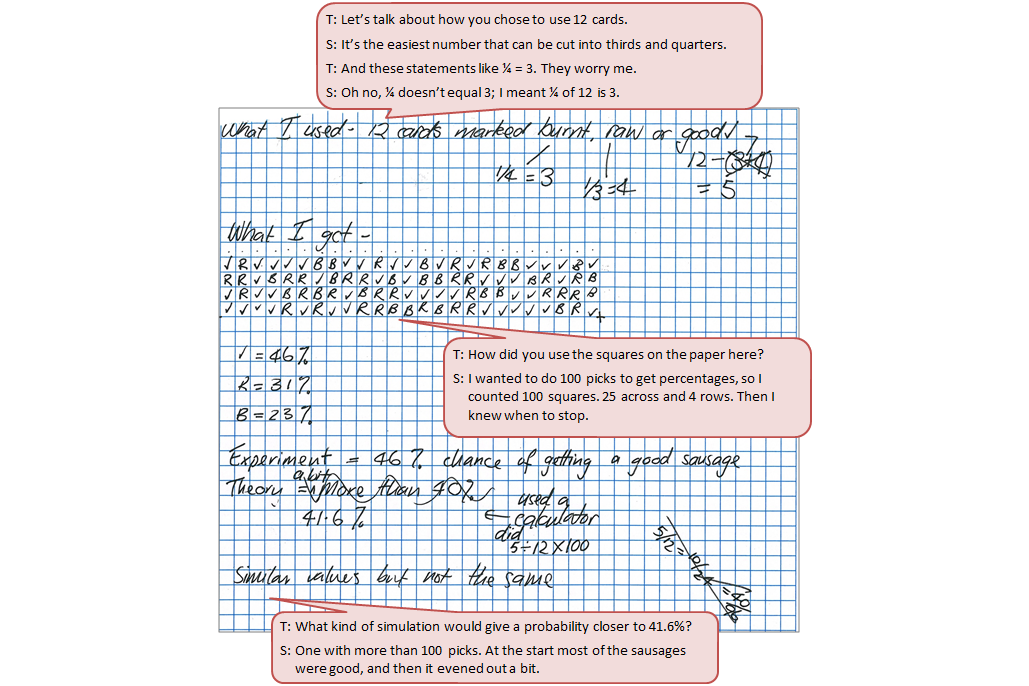 T: Let's talk about how you chose to use 12 cards.
S: It's the easiest number that can be cut into thirds and quarters.
T: And these statements like ¼ = 3. They worry me.
S: Oh no, ¼ doesn't equal 3; I meant ¼ of 12 is 3.
What I used - 12 cards marked burnt, raw or good
7
12 - (3+4)
1/4 = 3
1/3 = 4
= 5
What I got -
✓ R ✓ ✓ ✓ ✓ B B ✓ ✓ R ✓ ✓ B ✓ R ✓ R B B ✓ ✓ ✓ B ✓
R R ✓ B R R ✓ B R R ✓ B ✓ B B R R ✓ ✓ ✓ B R ✓ R B
✓ R ✓ ✓ B R B R ✓ B R R ✓ ✓ ✓ ✓ R B B ✓ ✓ R R R B
✓ ✓ ✓ ✓ R ✓ R ✓ ✓ R R B B R B R R ✓ ✓ ✓ ✓ ✓ B R ✓
T: How did you use the squares on the paper here?
S: I wanted to do 100 picks to get percentages, so I
counted 100 squares. 25 across and 4 rows. Then I
knew when to stop.
✓ = 46%
R = 31%
B = 23%
Experiment = 46% chance of getting a good sausage
a bit
Theory = More than 40%
41.6%
← used a
calculator
did
5÷12×100
5/12 = 10/24 = 40/96
Similar values but not the same
T: What kind of simulation would give a probability closer to 41.6%?
S: One with more than 100 picks. At the start most of the sausages
were good, and then it evened out a bit.